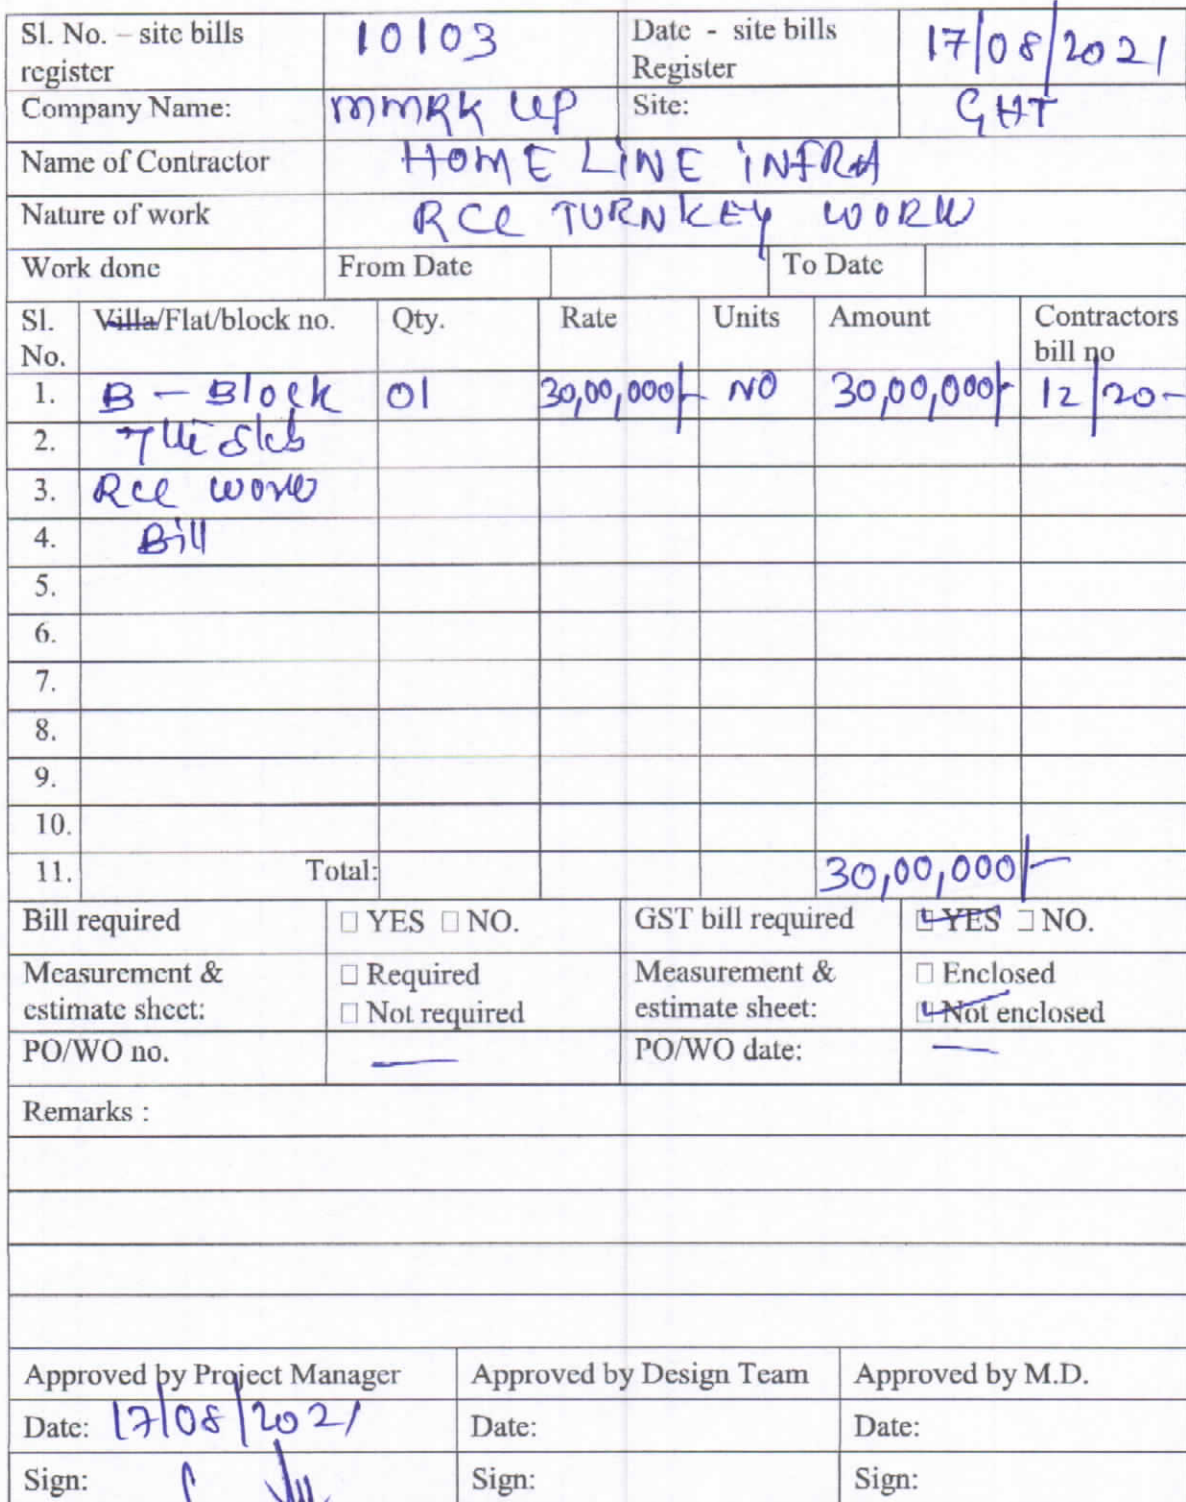 Sl. No. – site bills register 10103 Date - site bills Register 17/08/2021
Company Name: MMRK UP Site: GHT
Name of Contractor HOME LINE INFRA
Nature of work RCC TURNKEY WORK
Work done From Date To Date
Sl. No. Villa/Flat/block no. Qty. Rate Units Amount Contractors bill no
1. B - Block 01 30,00,000/- NO 30,00,000/- 12/20-
2. 7th Slab
3. RCC work
4. Bill
5.
6.
7.
8.
9.
10.
11. Total: 30,00,000/-
Bill required □ YES □ NO. GST bill required □ YES □ NO.
Measurement & estimate sheet: □ Required Measurement & estimate sheet: □ Enclosed
□ Not required □ Not enclosed
PO/WO no. — PO/WO date: —
Remarks :
Approved by Project Manager Approved by Design Team Approved by M.D.
Date: 17/08/2021 Date: Date:
Sign: Sign: Sign: